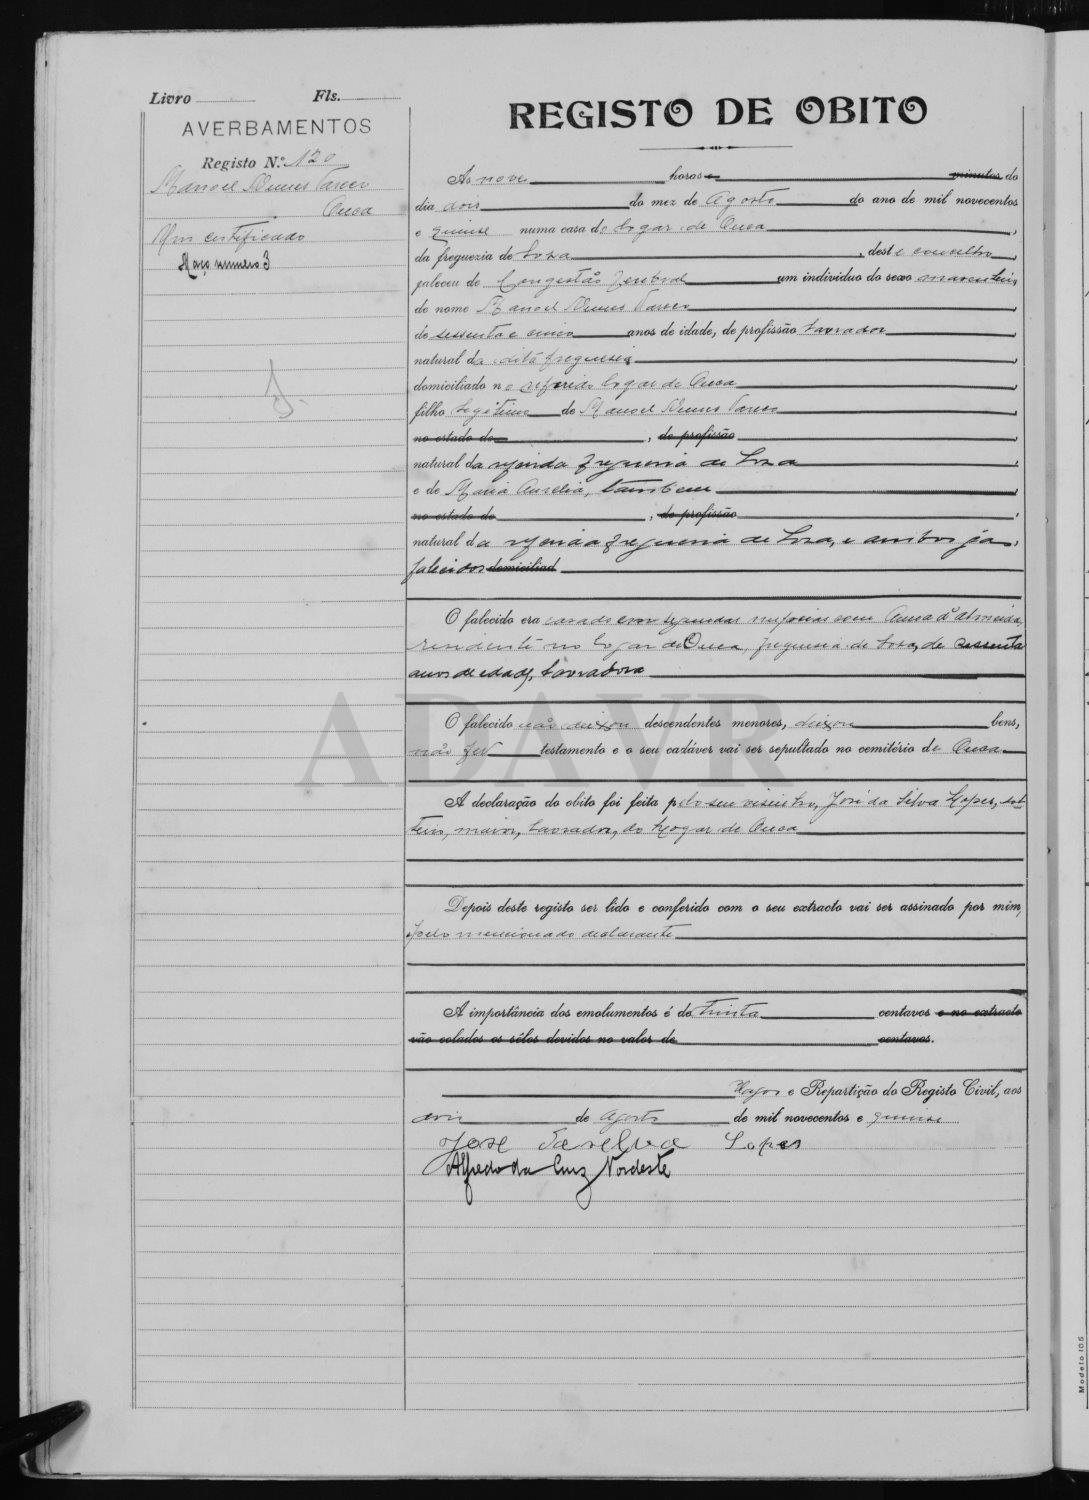 Livro Fls.
AVERBAMENTOS
Registo N.º 120
Manoel Nunes
Ouca
Um certificado
Maço numero 3
REGISTO DE OBITO
As nove horas e minutos do
dia dois do mez de Agosto do ano de mil novecentos
e quinse numa casa do logar de Ouca,
da freguezia de Soza, deste concelho,
faleceu de Congestão Cerebral um individuo do sexo masculino
de nome Manoel Nunes
de sessenta e cinco anos de idade, de profissão lavrador,
natural da dita freguesia,
domiciliado no referido logar de Ouca,
filho legitimo de Manoel Nunes,
no estado de, de profissão,
natural da referida freguesia de Soza,
e de Maria Aurelia, tambem,
no estado de, de profissão,
natural da referida freguesia de Soza, e ambos já
falecidos domiciliad
O falecido era casado em segundas nupcias com d'Almeida,
residente no logar de Ouca, freguesia de Soza, de sessenta
anos de edade, lavradora
ADAVR
O falecido não deixou descendentes menores, deixou bens,
não fez testamento e o seu cadáver vai ser sepultado no cemitério de Ouca
A declaração do obito foi feita pelo seu visinho, José da Silva Lopes, sol
teiro, maior, lavrador, do logar de Ouca
Depois deste registo ser lido e conferido com o seu extracto vai ser assinado por mim,
e pelo mencionado declarante
A importância dos emolumentos é de trinta centavos e no extracto
vão colados os sêlos devidos no valor de centavos.
Vagos e Repartição do Registo Civil, aos
dois de Agosto de mil novecentos e quinse
José da Silva Lopes
Alfredo da Cruz Nordeste
Modelo 106